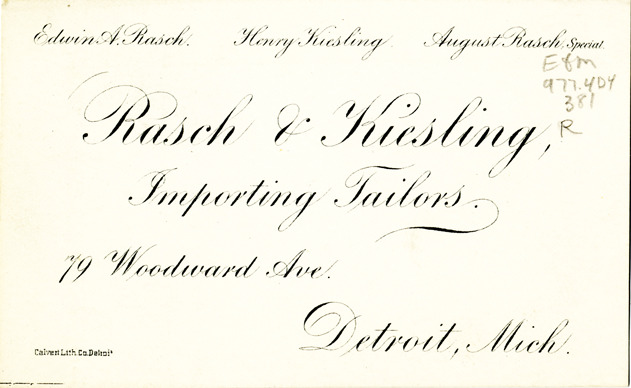 Edwin A. Rasch. Henry Kiesling. August Rasch, Special.
E&m
977.4D4
381
R
Rasch & Kiesling,
Importing Tailors.
79 Woodward Ave.
Detroit, Mich.
Calvert Lith. Co. Detroit